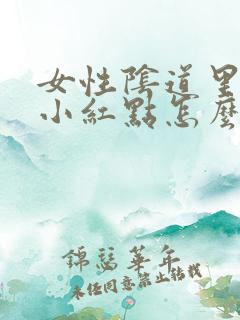 女性陰道里
小紅點怎麼
錦瑟華年
未经同意禁止转载